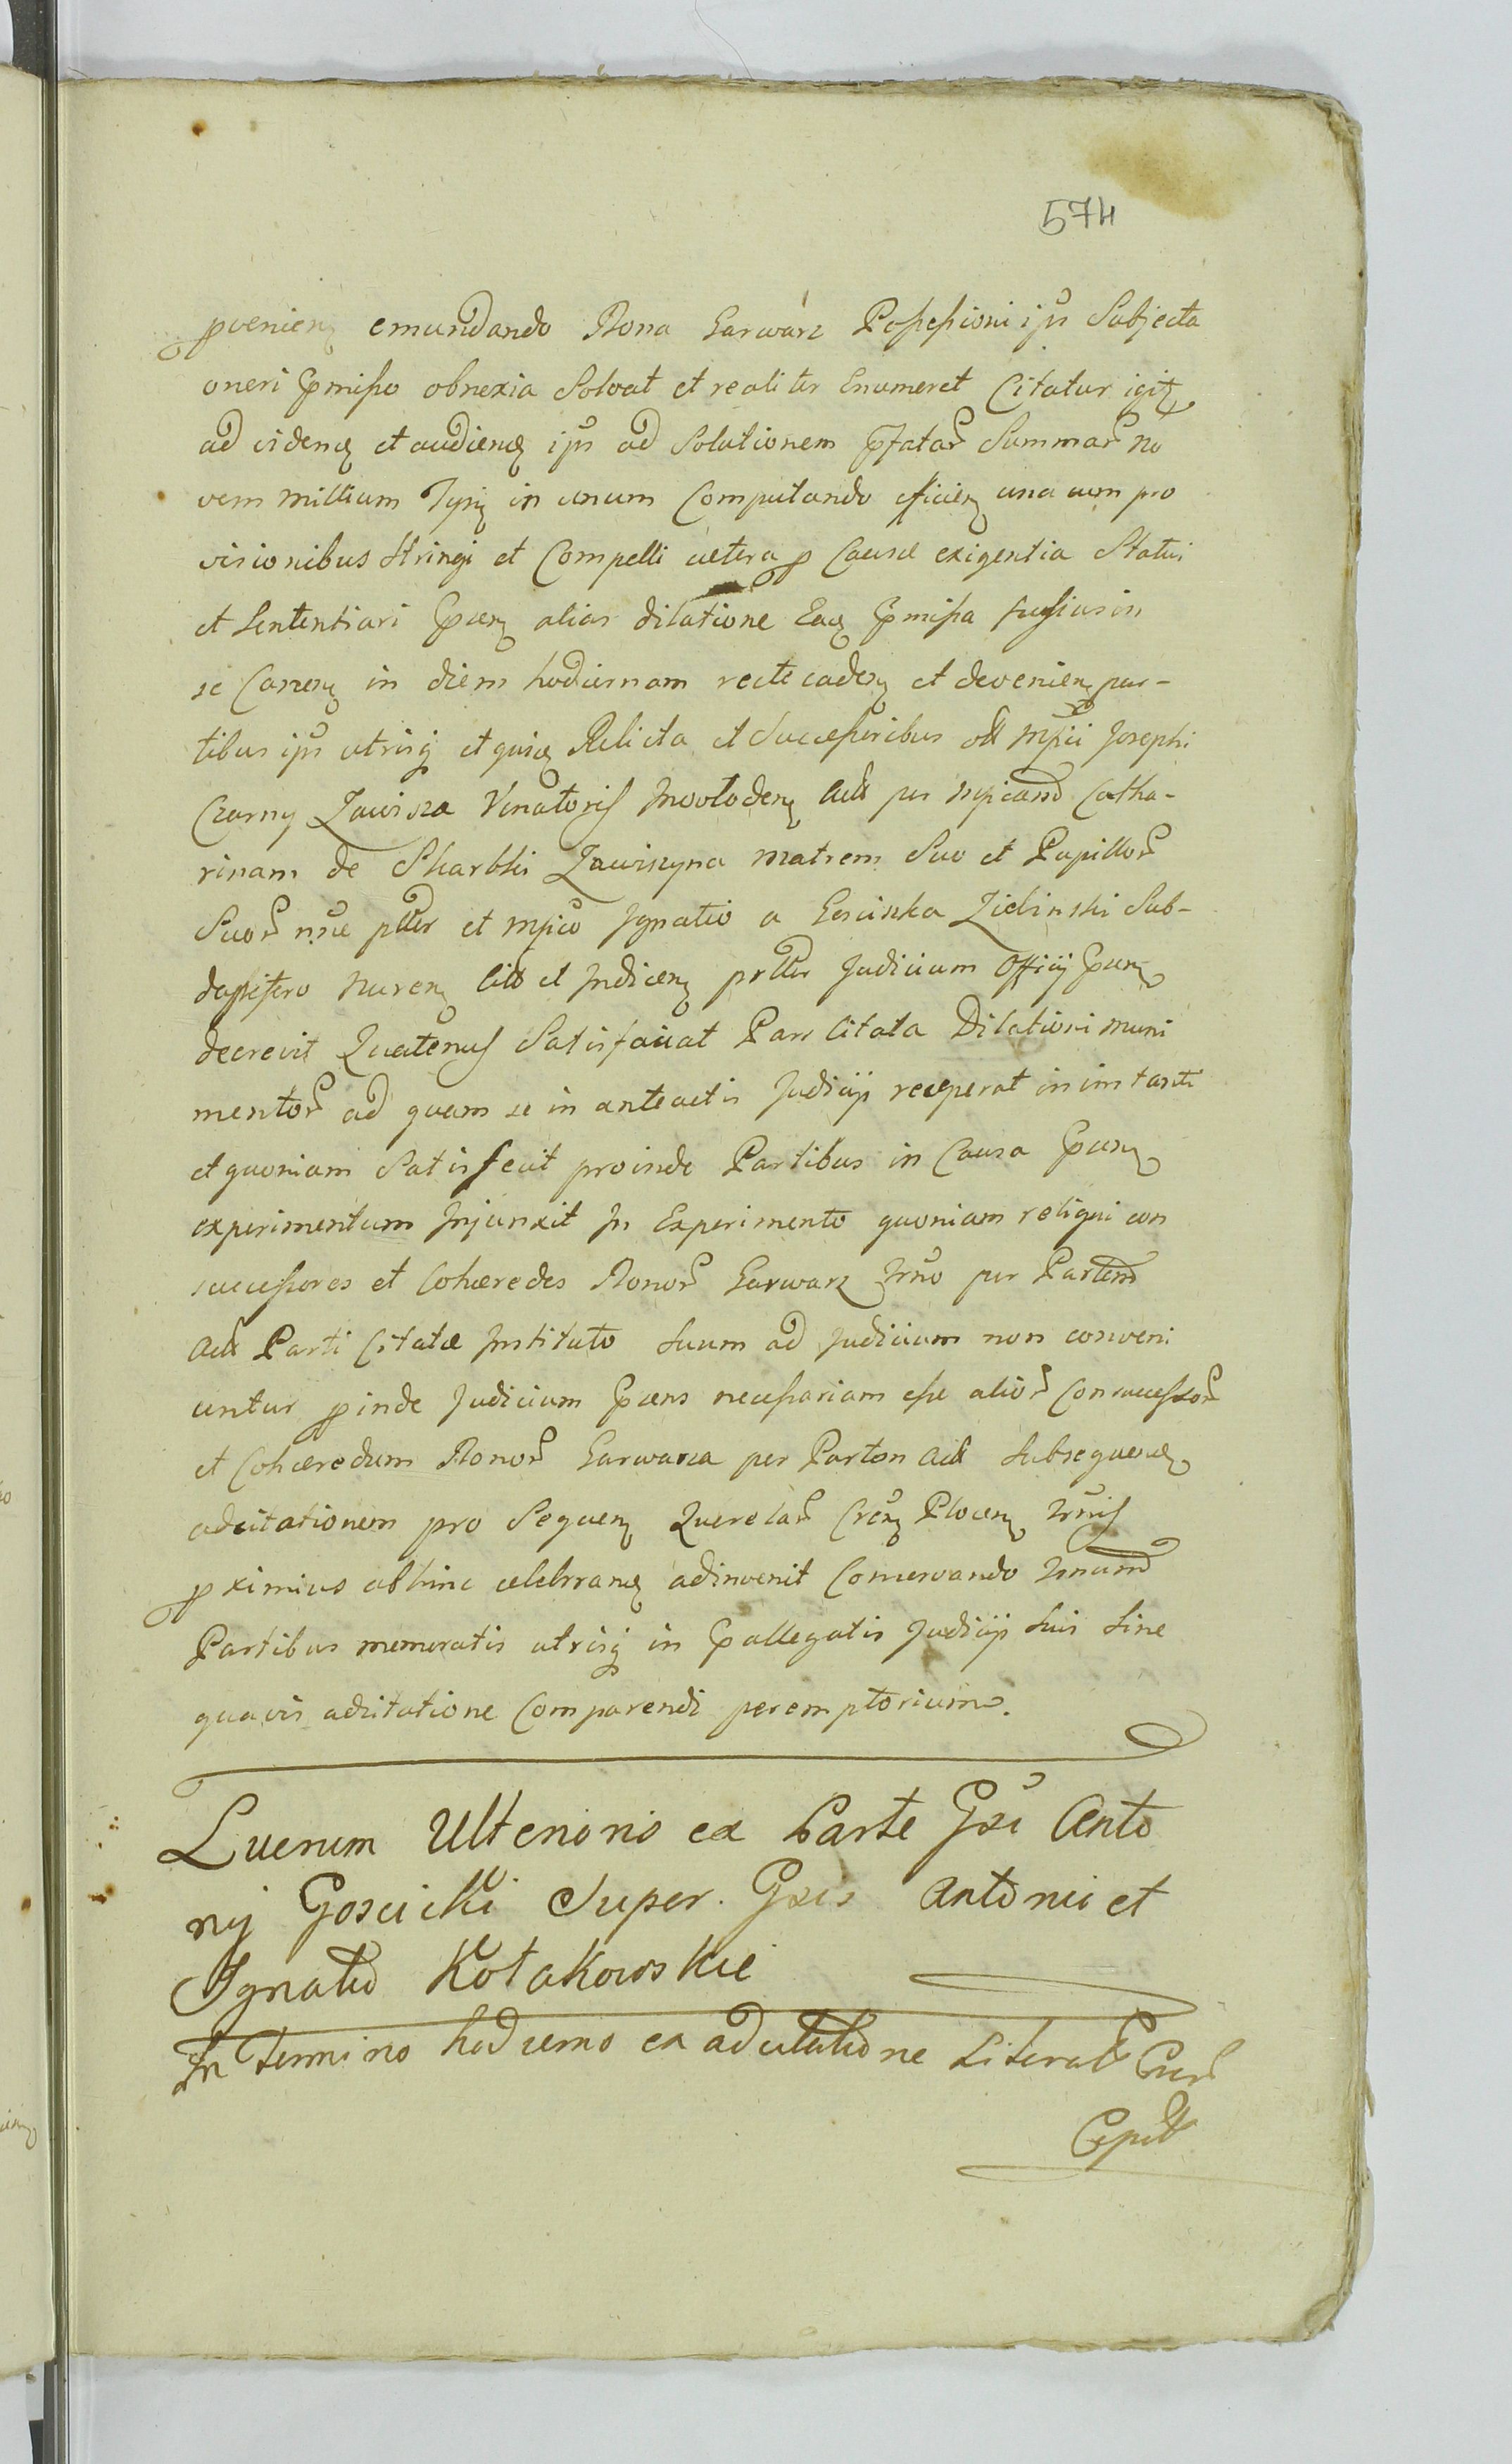 574
pvenien emundando Bona Garwarz Possessioni ips Subjecta
oneri pmisso obnoxia Solvat et realiter Enumeret Citatur igit
ad viden et audien ips ad Solutionem pfatar Summar no
vem millium Tynf in unum Computando efficien una cum pro
visionibus Stringi et Compelli cetera p Causæ exigentia Statui
et Sententiari pnen alias dilatione Ead pmissa fusius in
se Conen in diem hodiernam recte caden et devenien par-
tibus ips utrisq et quid Relicta et Successoribus oll Mfici Josephi
Czarny Zawisza Venatoris Inowloden Act per Mficam Catha-
rinam de Skarbki Zawiszyna matrem Suo et Pupillor
Suor nne psltr et Mfico Ignatio a Gosciszka Zielinski Sub-
dapifero Nuren Citt et Indicen psltr Judicium Officij pnen
decrevit Quatenus Satisfaciat Pars Citata Dilationi muni
mentor ad quam se in anteactis Judicijs receperat in instanti
et quoniam Satisfecit proinde Partibus in Causa pnen
experimentum Injunxit In Experimento quoniam reliqui con
successores et Cohæredes Bonor Garwarz Trno per Partem
Act Parti Citatæ Instituto Suum ad Judicium non conveni
untur pinde Judicium pnens necessariam esse alior Consuccessor
et Cohæredum Bonor Garwarza per Partem Act Subsequen
adcitationem pro Sequen Querelar Cren Plocen Trnis
pximius abhinc celebrand adinvenit Conservando Trnum
Partibus memoratis utrisq in pallegatis Judicijs Suis Sine
quavis adcitatione Comparendi peremptorium.
Lucrum Ulterioris ex Parte Gsi Anto
nij Goscicki Super Gsis Antonio et
Ignatio Kołakowskie
In Termino hodierno ex adcitatione Literali Cren
Capit